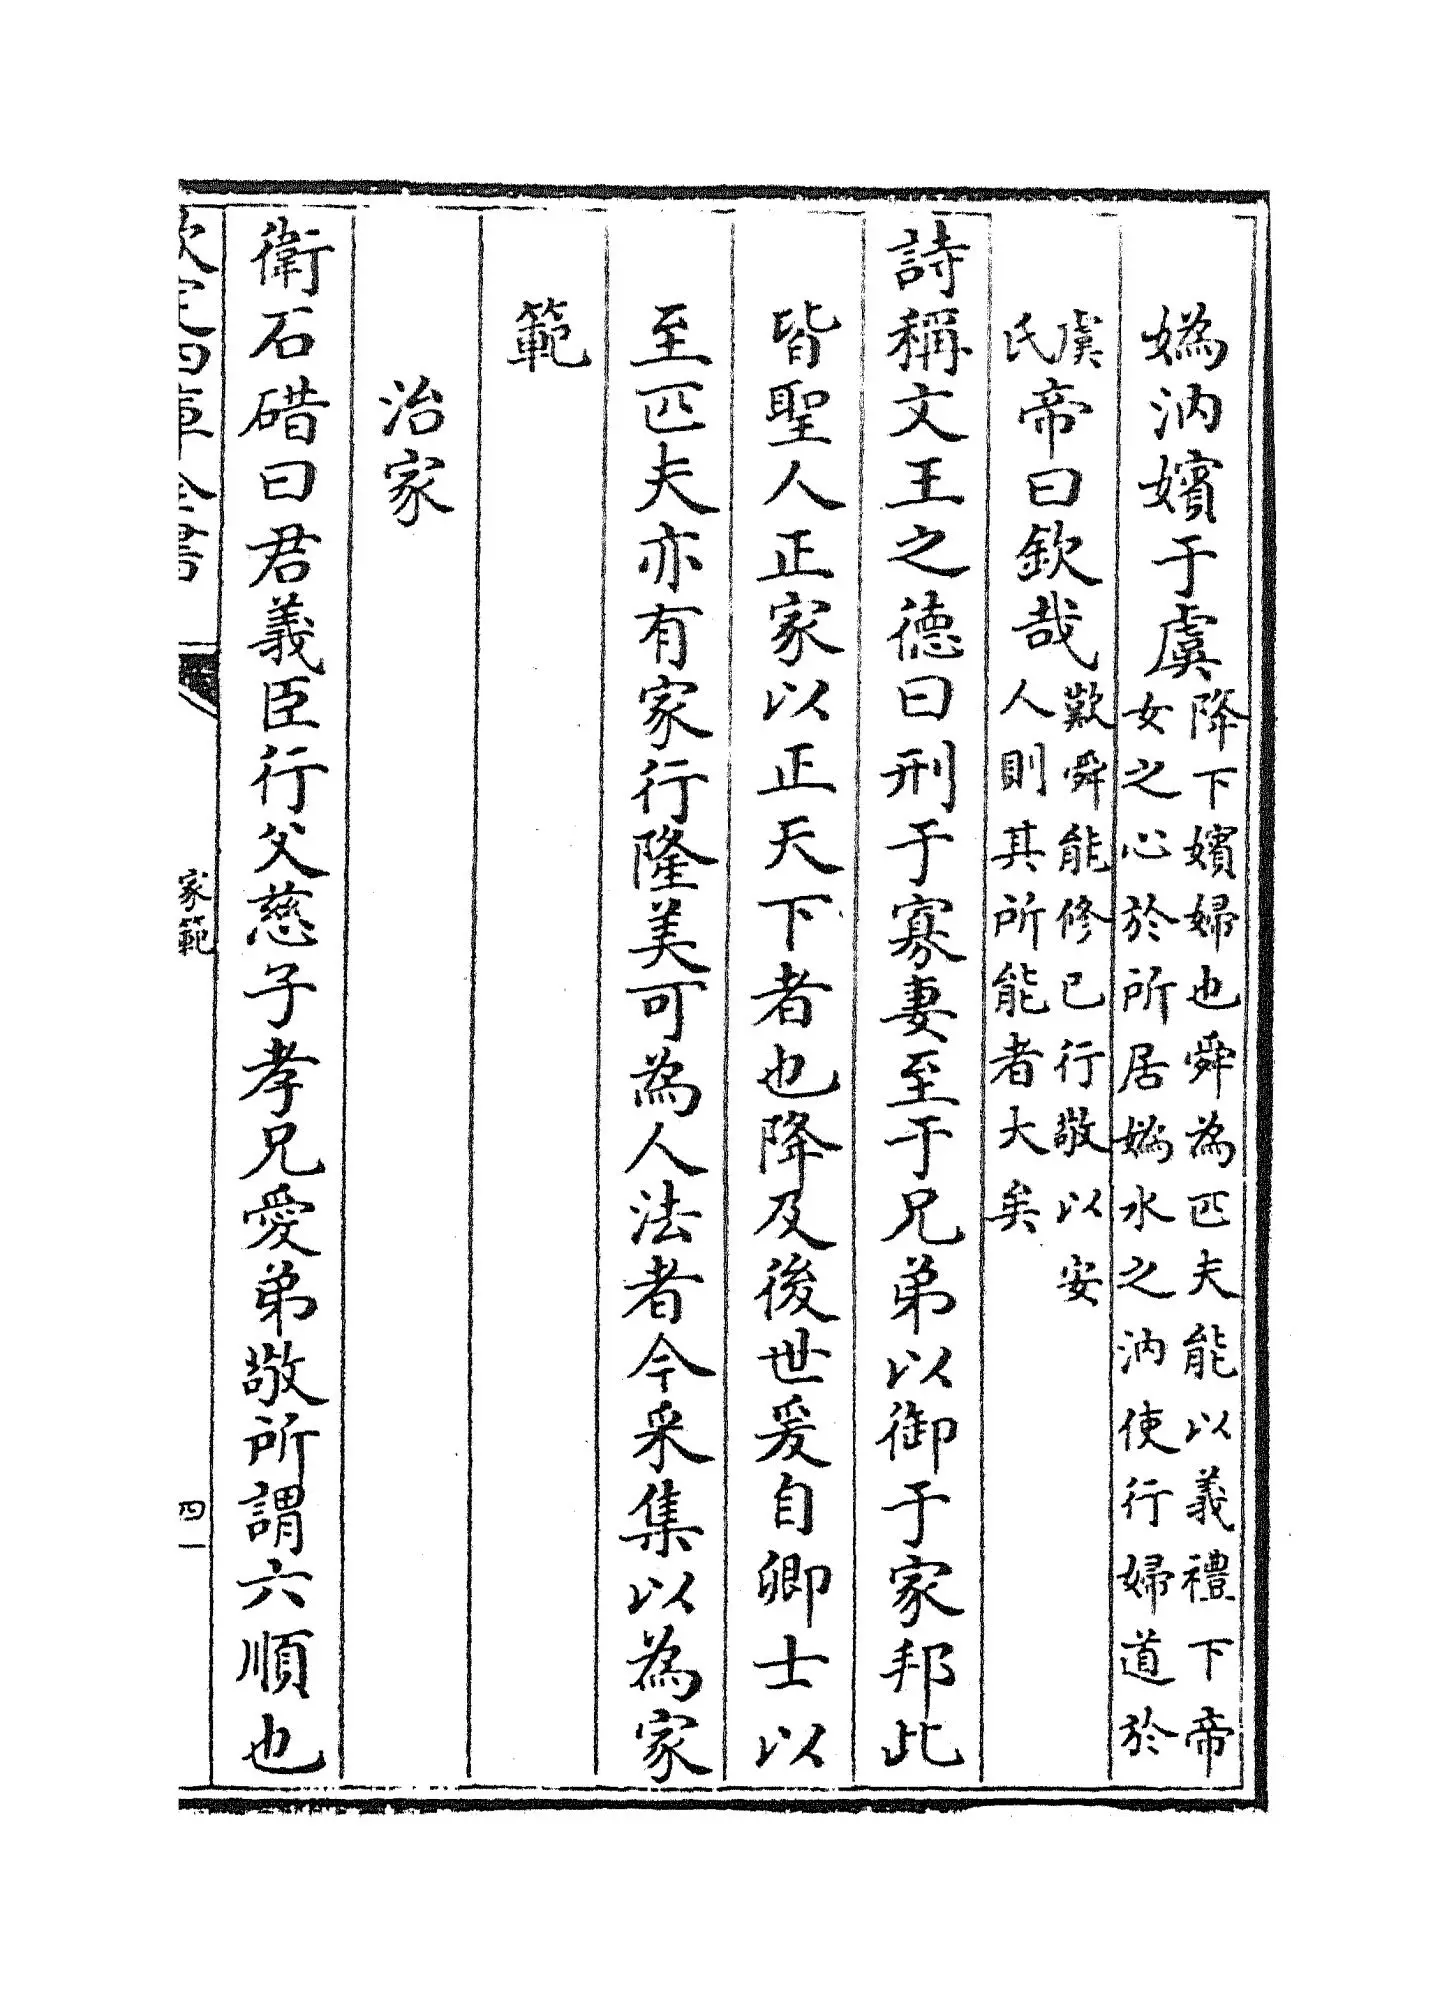 媯汭嬪于虞降下嬪婦也舜為匹夫能以義禮下帝女之心於所居媯水之汭使行婦道於
虞氏帝曰欽哉歎舜能修己行敬以安人則其所能者大矣
詩稱文王之德曰刑于寡妻至于兄弟以御于家邦此
皆聖人正家以正天下者也降及後世爰自卿士以
至匹夫亦有家行隆美可為人法者今采集以為家
範
治家
衛石碏曰君義臣行父慈子孝兄愛弟敬所謂六順也
欽定四庫全書
家範
四